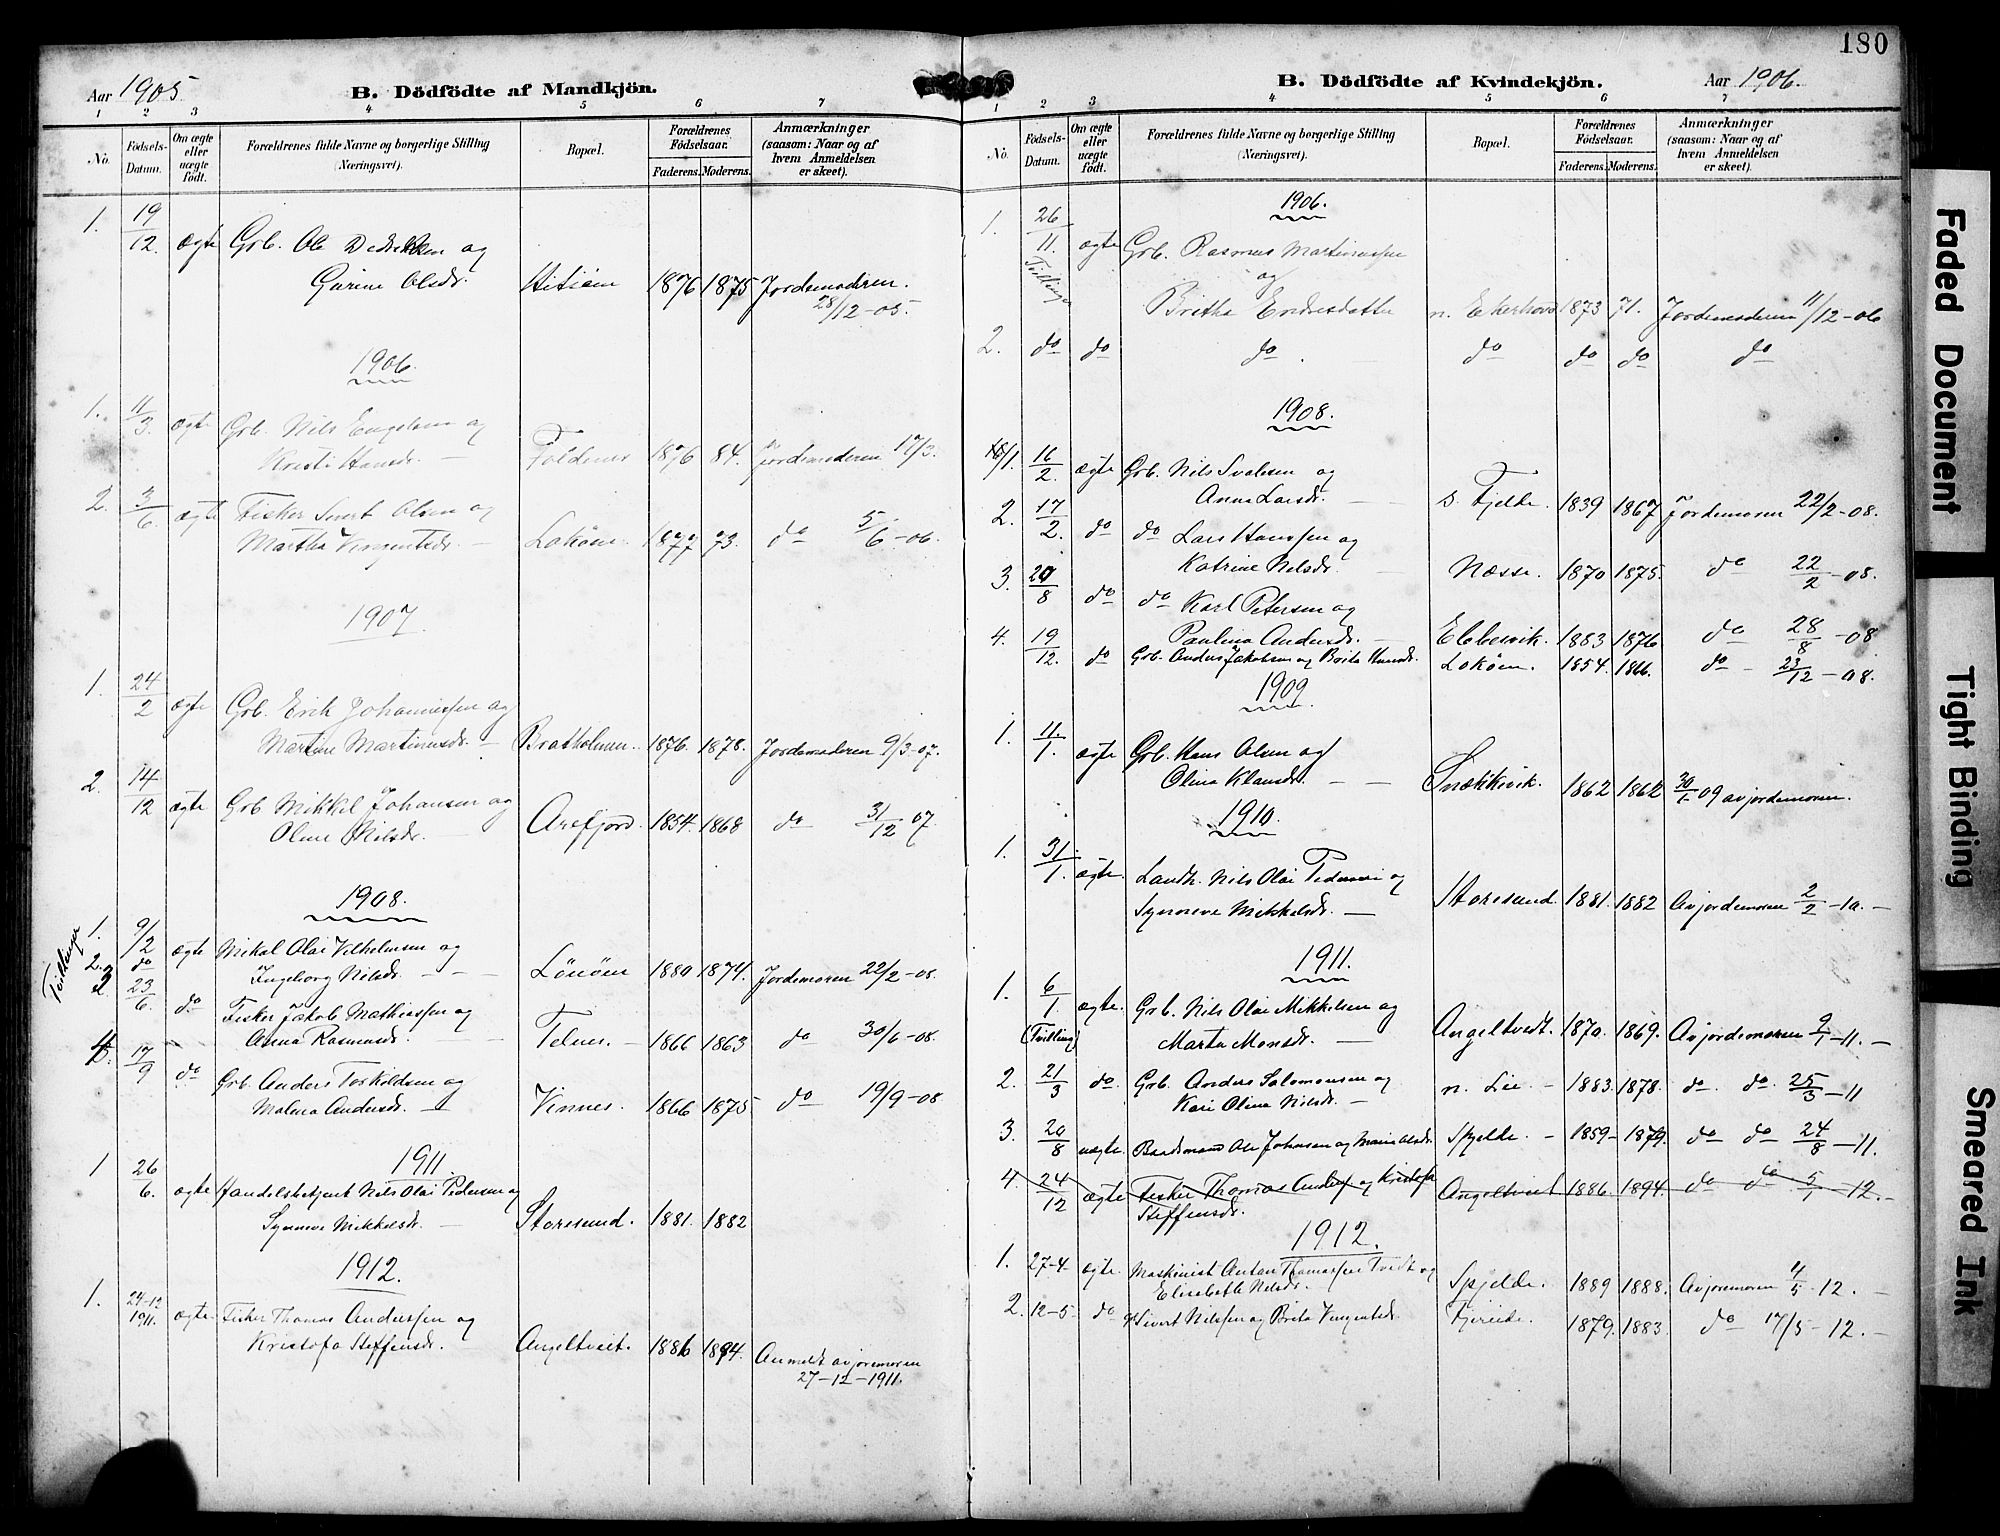 Aar 1905. B. Dödfödte af Mandkjön.
1 2 3 4 5 6 7
No. Födsels-Datum. Om ægte eller uægte födt. Forældrenes fulde Navne og borgerlige Stilling (Næringsvei). Bopæl. Forældrenes Födselsaar. Faderens. Moderens. Anmærkninger (saasom: Naar og af hvem Anmeldelsen er skeet).
1. 19/12 ægte Grb. Ole Dedriksen og
Gurine Olsdr. 1876 1875 Jordemoderen.
28/12-05.
1906.
1. 11/3 ægte Grb. Nils Engelsen og
Kristi Hansdr. — Foldenes 1876 84. Jordemoderen 17/3.
2. 3/6 ægte Fisker Sivert Olsen og
Martha Vingentsdr. — Lokøen. 1877 73. do 5/6-06.
1907.
1. 24/2 ægte Grb. Erik Johannessen og
Martine Martinusdr. — Bratholmen. 1876. 1878. Jordemoderen 9/3-07.
2. 14/12 ægte Grb Mikkel Johansen og
Oline Nilsdr. — Arefjord. 1854. 1868 do 31/12 07.
1908.
Tvillinger
1. 9/2 ægte Mikal Olai Vilhelmsen og
2. do Ingeborg Nilsdr. — — Lønøen 1880 1874. Jordemoren 22/2-08.
3 23/6 do Fisker Jakob Mathiassen og
Anna Rasmusdr. — Telnes. — 1866 1863 do 30/6-08.
4. 17/9 do Grb. Anders Toskildsen og
Malena Andersdr. — Vinnes. 1866 1875 do 19/9-08
1911.
1 26/6. ægte Handelsbetjent Nils Olai Pedersen og
Synneve Mikkelsdr. — Storesund. 1881. 1882
1912.
1. 24-12 1911. ægte. Fisker Thomas Anderssen og
Kristofa Steffensdr. Angeltveit. 1886 1894. Anmeldt av joremoren
27-12-1911.
180
B. Dödfödte af Kvindekjön. Aar 1906.
1 2 3 4 5 6 7
No. Födsels-Datum. Om ægte eller uægte födt. Forældrenes fulde Navne og borgerlige Stilling (Næringsvei). Bopæl. Forældrenes Födselsaar. Faderens. Moderens. Anmærkninger (saasom: Naar og af hvem Anmeldelsen er skeet).
1906.
1. 26/11. ægte Grb. Rasmus Martinussen
Tvillinger og
Britha Endresdatter n. Ekerhovd 1873 71. Jordemoderen 11/12-06
2. do do do. do do do do
1908.
1. 16/2 ægte Grb. Nils Svalesen og
Anna Larsdr. — S. Fjelde. 1839 1867 Jordemoren 22/2-08.
2. 17/2. do do Lars Hanssen og
Katrine Nilsdr. — Næsse. 1870 1875. do 22/2-08.
3. 20/8 do do Karl Petersen og
Paulina Andersdr. — Ebbesvik. 1883 1876 do 28/8-08
4. 19/12. do Grb. Anders Jakobsen og Brita Hansdr. Lokøen. 1854. 1866. do — 23/12-08.
1909.
1. 11/1. ægte Grb. Hans Olsen og
Olina Klausdr. — — Snekkevik. 1862 1862 30/1-09 av jordemoren.
1910.
1. 31/1. ægte. Landh. Nils Olai Pedersen og
Synneve Mikkelsdr. — Storesund. 1881. 1882 Av jordemoren 2/2-10.-
1911.
1. 6/1 ægte. Grb. Nils Olai Mikkelsen og
(Tvilling) Marta Monsdr. — Angeltvedt. 1870. 1869. Av jordemoren 9/1-11.-
2. 21/3 do. Grb. Anders Salomonsen og
Kari Olina Nilsdr. — n. Lie. — 1883. 1878. do. do. 25/3-11
3. 20/8 uægte. Baadsmand Ole Johansen og Marie Olsdr. Spjelde. — 1859- 1879. do do 24/8-11.
4. 24/12 ægte Fisker Thomas Anders. og Kristofa
Steffensdr. Angeltveit 1886. 1894. do do 5/1-12.-
1912.
1. 27-4- ægte. Maskinist Anton Thomassen Tvedt og
Elisabeth Nilsdr. Spjelde. 1889 1888. Av joremoren 4/5-12.-
2. 12-5- do Sivert Nilssen og Brita Vingentsdr. Fjereide. 1879. 1883. do 17/5-12.-
Faded Document
Tight Binding
Smeared Ink